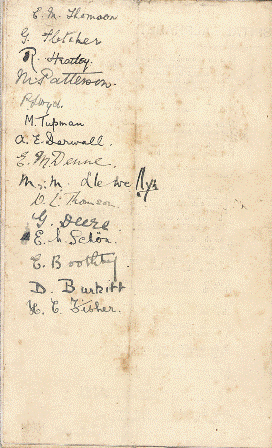 E. M. Thomson
G. Fletcher
R. Hartley
M. Patterson.
M. Tupman
A. E. Darwall.
E. M Denne.
D. L. Thomson.
G. Deere.
E. S. Schön.
E. Boothby
D. Burkitt
H. E. Fisher.